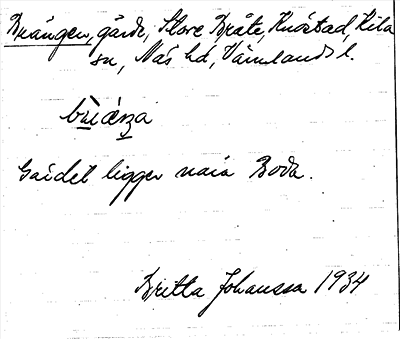 Brängen, gärde, Stora Bråte, Knöstad, Kila
sn, Näs hd, Värmlands l.
Gärdet ligger nära Boda.
Britta Johansson 1934